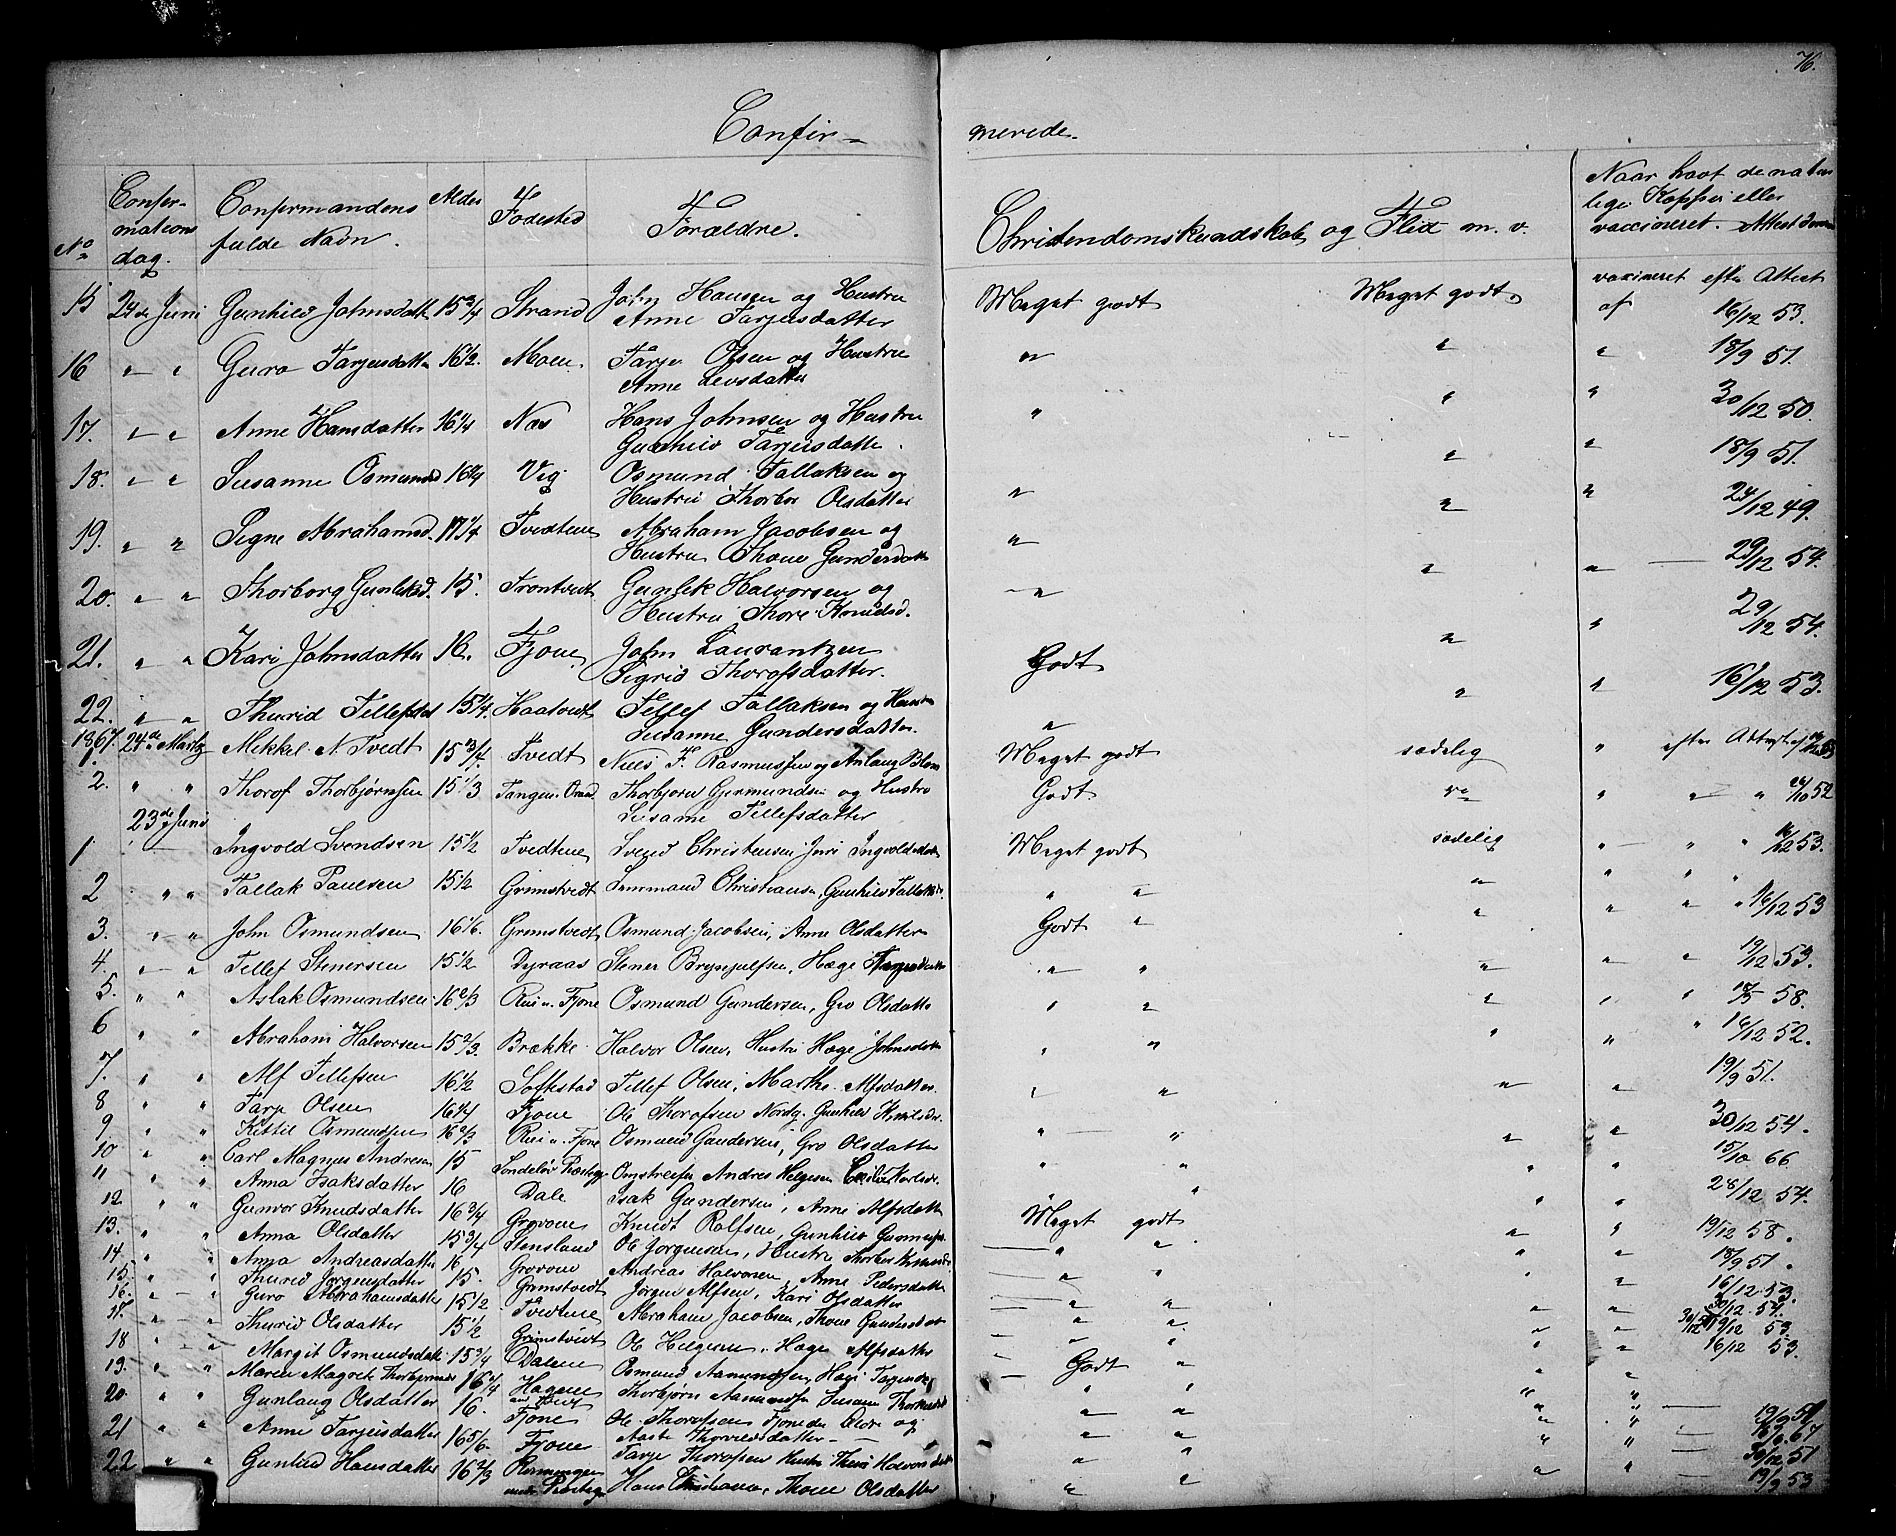 76.
Confir- merede.
No Confer- mations dag. Confirmandens fulde Navn. Alder Fødested Forældre. Christendomskundskab og Flid m. v. Naar havt de natur lige Kopper eller vaccineret. Attest
15 24de Juni Gunhild Johnsdatt 15 3/4 Strand John Hansen og Hustru Anne Tarjeisdatter Meget godt Meget godt vaxineret efter Attest af 16/12 53.
16 " " Guro Tarjeisdatter 16 1/2. Moen Tarje Olsen og Hustru Anne Leivsdatter " " " 18/9 51.
17. " " Anne Hansdatter 16 1/4 Næs Hans Johnsen og Hustru Gunhild Tarjeisdatter. " " " 30/12 50.
18. " " Susanne Osmundsd 16 1/4 Vig Osmund Tallaksen og Hustru Thorbor Olsdatter " " " 18/9 51.
19. " " Signe Abrahamsd. 17 1/4 Tvedtene Abraham Jacobsen og Hustru Thone Gundersdatter " " " 24/12 49.
20. " " Thorborg Gunleksd. 15. Trontvedt Gunlek Halvorsen og Hustru Thore Knudsd. " " " — 29/12 54.
21. " " Kari Johnsdatter 16. Fjone John Laurantzen Sigrid Thorofsdatter. Godt " " 29/12 54.
22. " " Thurid Tellefsdat 15 1/4. Haatvedt Tellef Tallaksen og Hustru Susanne Gundersdatter. " " " 16/12 53.
1867. 24de Martz
1. Mikkel N. Tvedt 15 3/4. Tvedt Niels F. Rasmussen og Anlaug Meget godt sædelig " efter Attest af
2. " " Thorof Thorbjørnsen 15 1/3 Tangen Thorbjørn Germundsen og Hustru Susanne Tellefsdatter Godt " " " 52
23de Juni
1 Ingvold Svendsen 15 1/2 Tvedtene Svend Christensen, Ingvoldsdatter Meget godt sædelig " — " " 16/12 53.
2 " " Tallak Paulsen 15 1/2 Grimstvedt Christiansen, Gunhild Tallaksd. " " " " " " 16/12 53
3. " " John Osmundsen 16 1/6. Grimstvedt Osmund Jacobsen, Anne Olsdatter Godt " " " "
4. " " Tellef Stenersen 15 1/2 Dyraas Stener Brynjulfsen, Hæge " " " " " 19/12 53.
5. " " Aslak Osmundsen 16 2/3 Rui u. Fjone Osmund Gundersen, Gro Olsdatter " " " " " 58.
6 " " Abraham Halvorsen 15 2/3. Brække Halvor Olsen, Hustru Hæge Johnsdatter " " " " " 14/12 52.
7. " " Alf Tellefsen 16 1/2 Softestad Tellef Olsen, Marthe Alfsdatter. " " " " 19/9 51.
8 " " Tarje Olsen 16 1/4 Fjone Ole Thorofsen Nordg. Gunhild 30/12 54.
9 " " Kittil Osmundsen 16 2/3 Rui u. Fjone Osmund Gundersen, Gro Olsdatter " " " "
10 " " Carl Magnus Andresen 15 Søndeløv Præsteg. Omstreifer Andres Helgesen " " " " 15/10 66
11 " " Anna Isaksdatter 16 Dale Isak Gundersen, Anne Alfsdatter " " " 28/12 54.
12. " " Gunvor Knudsdatter 16 3/4 Grøvom Knudt Rolfsen, Gunhild Meget godt " " 19/12 58.
13. " " Anna Olsdatter 15 3/4 Stensland Ole Jørgensen, Hustru Thorbor " " " " 18/9 51.
14. " " Anna Andreasdatter 16 Grøvom Andreas Halvorsen, Anne Pedersdatter " " " " 16/12 53.
15. " " Thurid Jørgensdatter 15. Grimstvedt Jørgen Alfsen, Kari Olsdatter " " " " 30/12 54.
16. " — " Guro Abrahamsdatter 15 1/2 Tvedtene Abraham Jacobsen, Thone Gundersdat " " " " 19/12 53.
17. " " Thurid Olsdatter 15 1/2 Grimstvedt Ole Helgesen, Hæge Alfsdatter " " " " 16/12 53.
18 " " Margit Osmundsdat 15 3/4 Dalene Osmund Aamundsen, Godt "
19. " " Maren Magrete Thorbjørns 16 1/4 Hagene Thorbjørn Aamundsen Susann
20 " " Gunlaug Olsdatter 16. Fjone Ole Thorofsen Fjone og Aaste Thorvedsdatter — " "
21 " " Anne Tarjeisdatter 16 5/6. Fjone Tarje Thorofsen Hustru Thore Halvorsdatter " " " " 51
22 " " Gunhild Hansdatter 16 2/3 Hans Christiansen, Thone Olsdatter " " " " 19/9 53